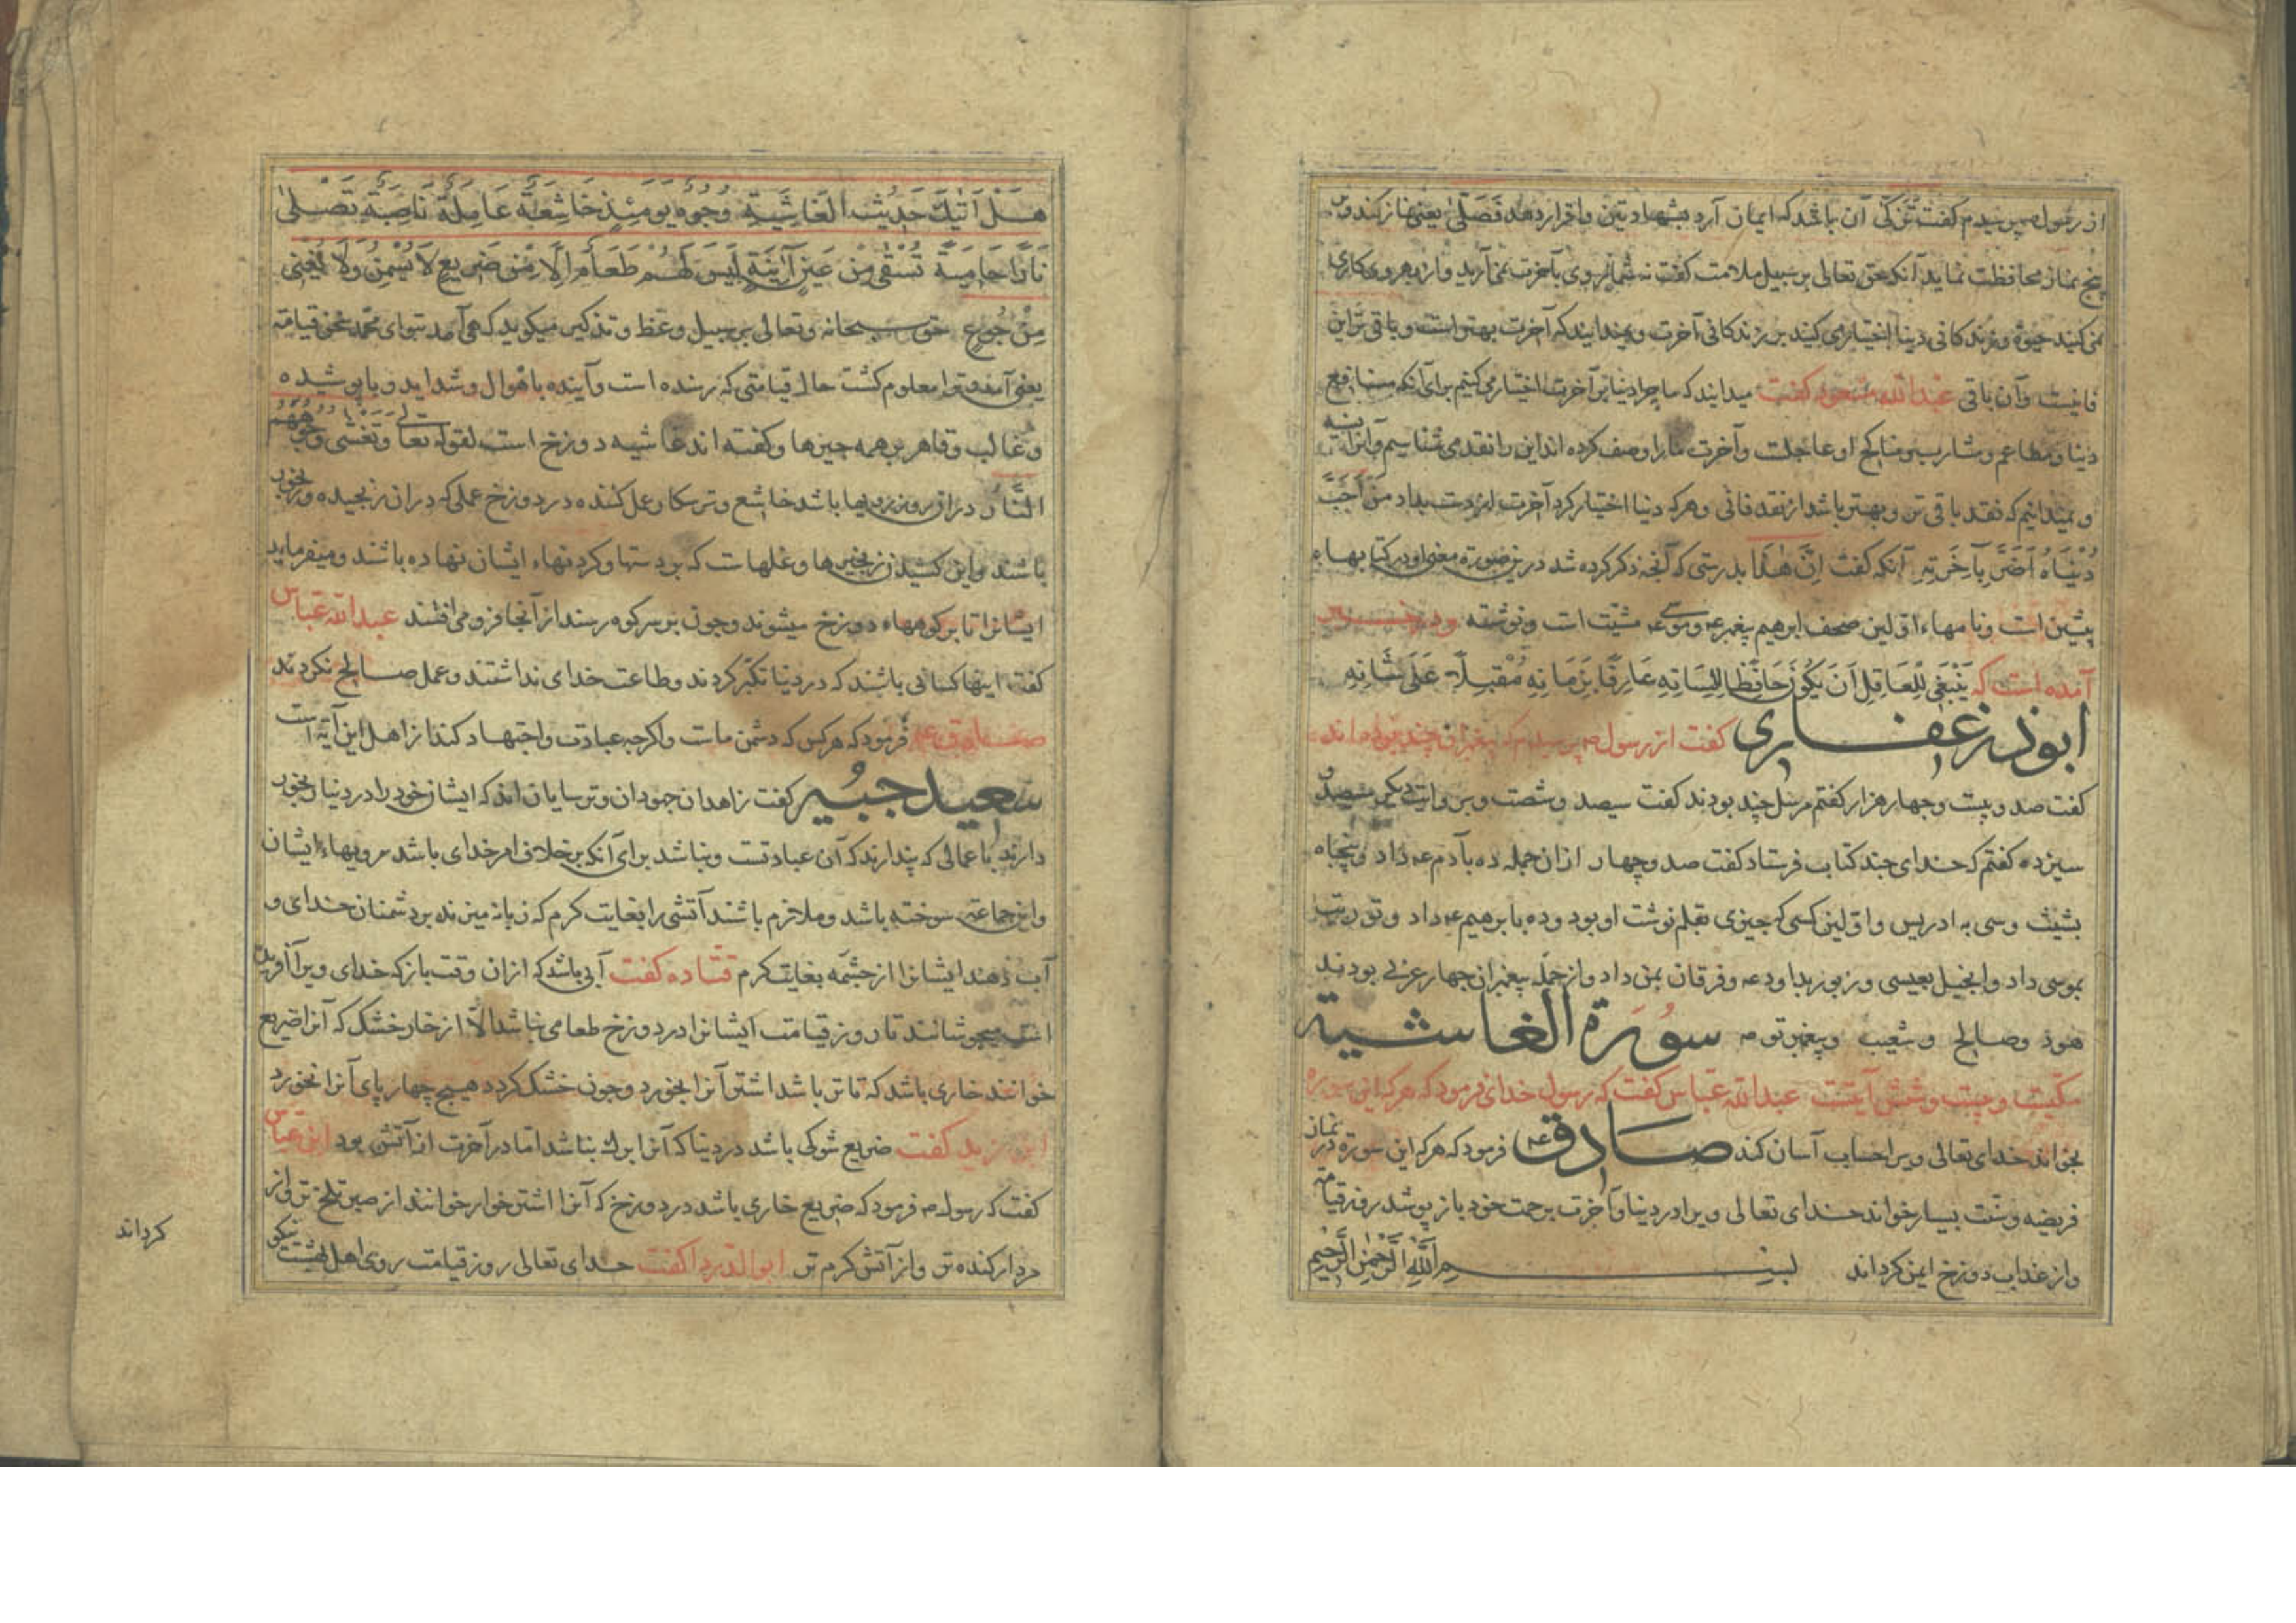 از رسول صم پرسیدم کفت تزکّی آن باشد که ایمان آرد بشهادتین واقرار دهد فَصَلّی یعنی نماز کند و بر
پنج نماز محافظت نماید آنکه حق تعالی بر سبیل ملامت کفت نه شما روی بآخرت نمی آرید و از بهر وی کاری
نمی کنید حیوة و زندکانی دنیا اختیار می کنید بر زندکانی آخرت و نمیدانید که آخرت بهتر است و باقی تر این
فانیست و آن باقی عبدالله مسعود کفت میدانید که ما چرا دنیا بر آخرت اختیار می کنیم برای آنکه منافع
دنیا و مطاعم و مشارب و مناکح او عاجلت و آخرت ما را وصف کرده اند این را نقد می شناسیم و آنرا نسیه
و نمیدانیم که نقد باقی تر و بهتر باشد از نقد فانی و هر که دنیا اختیار کرد آخرت از دست بداد مَنْ اَحَبَّ
دُنْیَاهُ اَضَرَّ بِآخِرَتِهِ آنکه کفت اِنَّ هٰذَا بدرستی که آنچه ذکر کرده شد درین صورة معنی او در کتابهاء
پیشین است و نامهاء اولین صحف ابرهیم پیغمبر عم و موسی عم مثبت است و نوشته و در
آمده است که یَنْبَغِی لِلْعَاقِلِ اَنْ یَکُونَ حَافِظًا لِلِسَانِهِ عَارِفًا بِزَمَانِهِ مُقْبِلًا عَلَی شَانِهِ
ابوذر غفاری کفت از رسول صم پرسیدم که پیغمبران چند بوده اند
کفت صد و بیست و چهار هزار کفتم مرسل چند بودند کفت سیصد و شصت و بروایت دیکر سیصد و
سیزده کفتم که خدای چند کتاب فرستاد کفت صد و چهار از ان جمله ده بآدم عم داد و پنجاه
بشیث و سی به ادریس و اولین کسی که چیزی بقلم نوشت او بود و ده بابرهیم عم داد و توریت
بموسی داد و انجیل بعیسی و زبور بداود عم و فرقان بمن داد و از جمله پیغمبران چهار عربی بودند
هود و صالح و شعیب و پیغمبر تو صم سُورَة الغاشیة
مکّیست و بیست و شش آیتست عبدالله عباس کفت که رسول خدای فرمود که هر که این سوره
بخواند خدای تعالی ویرا حساب آسان کند صادق عم فرمود که هر که این سورة در نماز
فریضه و سنّت بسیار خواند خدای تعالی ویرا در دنیا و آخرت برحمت خود باز پوشد روز قیامة
و از عذاب دوزخ ایمن کرداند بسم الله الرحمن الرحیم
هَلْ اَتٰیكَ حَدِیثُ الْغَاشِیَةِ وُجُوهٌ یَوْمَئِذٍ خَاشِعَةٌ عَامِلَةٌ نَاصِبَةٌ تَصْلیٰ
نَارًا حَامِیَةً تُسْقٰی مِنْ عَیْنٍ آنِیَةٍ لَیْسَ لَهُمْ طَعَامٌ اِلَّا مِنْ ضَرِیعٍ لَا یُسْمِنُ وَلَا یُغْنِی
مِنْ جُوعٍ حق سبحانه و تعالی بر سبیل وعظ و تذکیر میکوید که هی آمد بتو ای محمد سخن قیامة
یعنی آمد و ترا معلوم کشت حال قیامتی که رسنده است و آینده باهوال و شداید و باپوشیده
و غالب و قاهر بر همه چیزها و کفته اند غاشیه دوزخ است لقوله تعالی وَتَغْشٰی وُجُوهَهُمُ
النَّارُ در ان روز رویها باشد خاشع و ترسکار و عمل کننده در دوزخ عملی که در ان رنجیده و رنجور
باشند و این کشیدن زنجیرها و غلهاست که بر دستها و کردنهاء ایشان نهاده باشند و میفرماید
ایشانرا تا بر کوههاء دوزخ میشوند و چون بر سر کوه رسند از آنجا فرو می افتند عبدالله عباس
کفت اینها کسانی باشند که در دنیا تکبّر کردند و طاعت خدای نداشتند و عمل صالح نکردند
صادق عم فرمود که هر کس که دشمن ماست و اکرچه عبادت و اجتهاد کند از اهل این آیة است
سعید جبُیر کفت زاهدان جهودان و ترسایان اند که ایشان خود را در دنیا رنجور
دارند باعمالی که پندارند که آن عبادتست و نباشد برای آنکه بر خلاف امر خدای باشد رویهاء ایشان
و این جماعت سوخته باشد و ملازم باشند آتشی را بغایت کرم که زبانه میزند بر دشمنان خدای و
آب دهند ایشانرا از چشمه بغایت کرم قتاده کفت آبی باشد که از ان وقت باز که خدای ویرا آفریده
است میجوشانند تا روز قیامت ایشانرا در دوزخ طعامی نباشد الّا از خار خشک که آنرا ضریع
خوانند خاری باشد که تا تر باشد اشتر آنرا بخورد و چون خشک کردد هیچ چهار پای آنرا نخورد
ابن زید کفت ضریع شوکی باشد در دنیا که آنرا برك نباشد اما در آخرت از آتش بود ابن عباس
کفت که رسول صم فرمود که ضریع خاری باشد در دوزخ که آنرا اشتر خوار خوانند از صبر تلخ تر و از
مردار کنده تر و از آتش کرم تر ابوالدردا کفت خدای تعالی روز قیامت روی اهل بهشت نیکو
کرداند